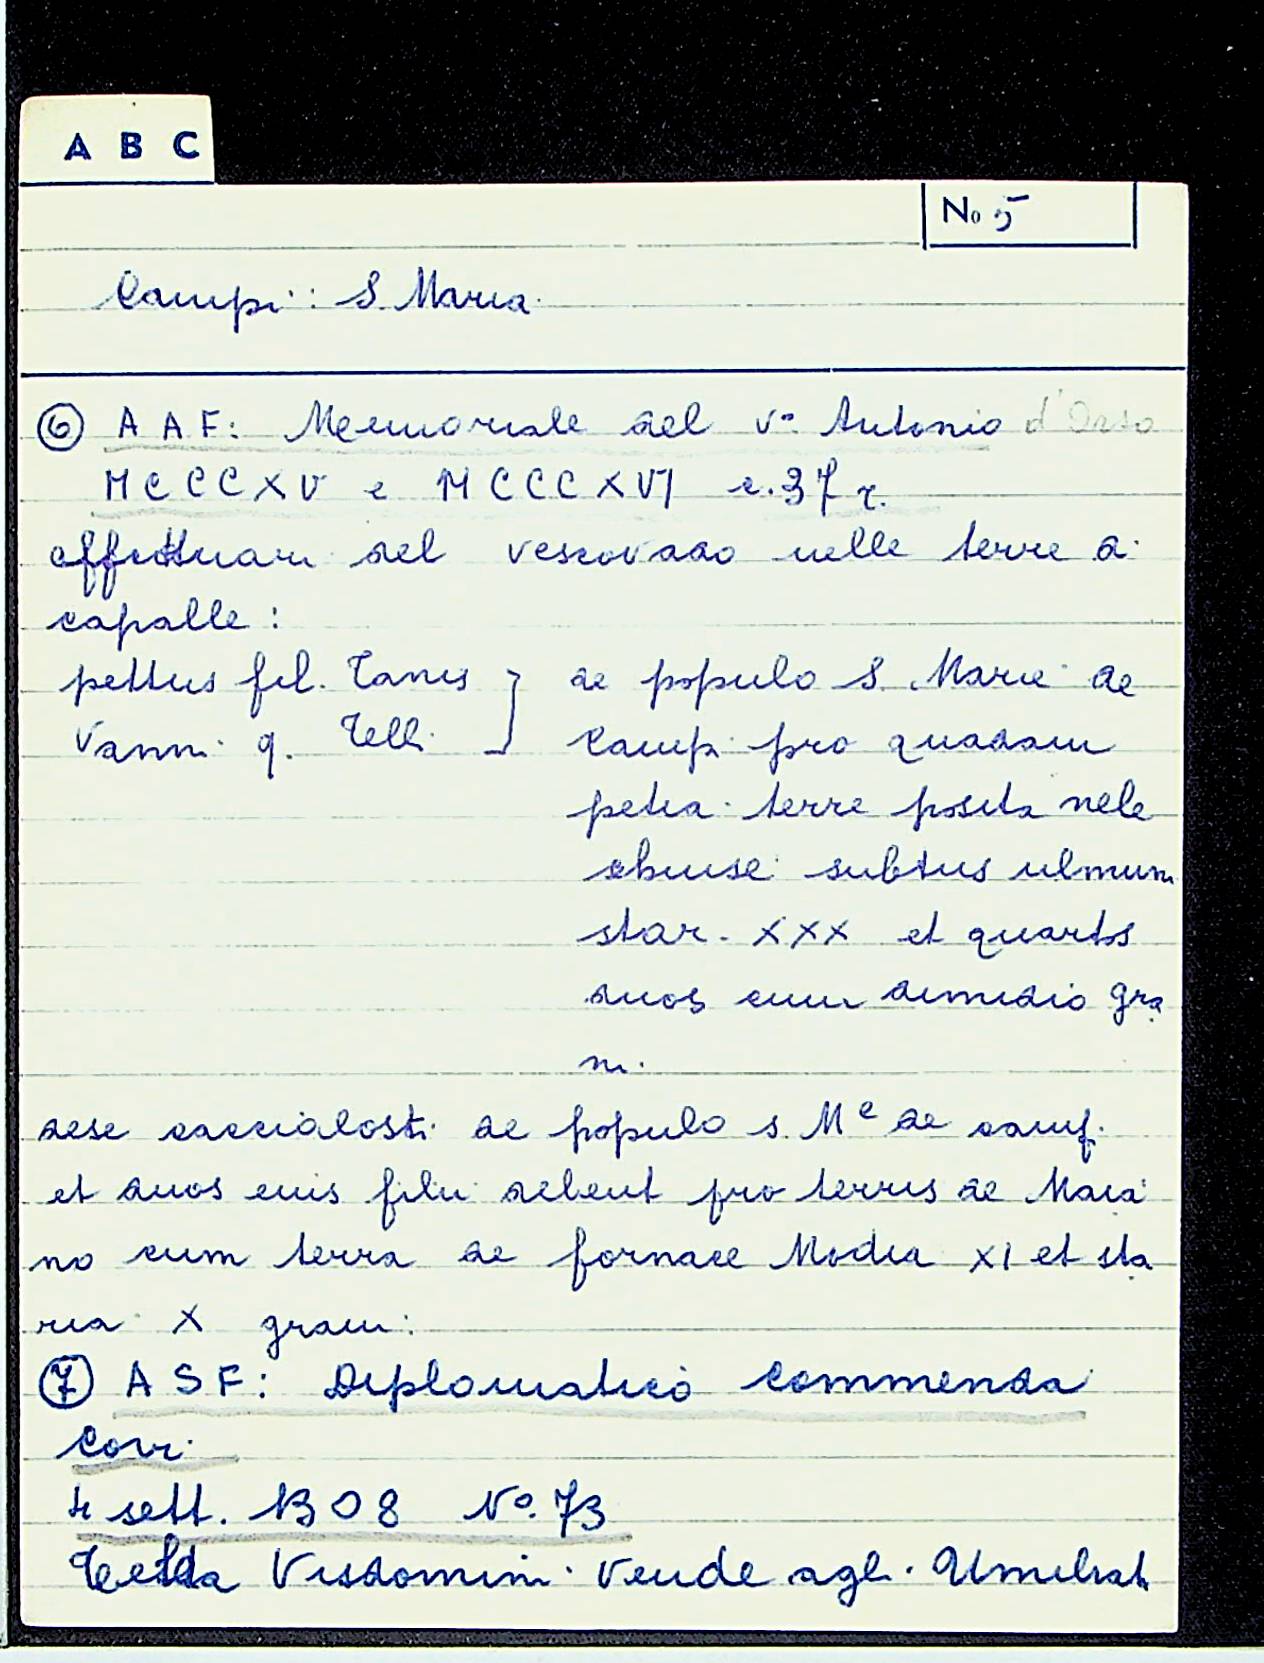 A B C
No 5
Campi: S. Maria
⑥ A A F: Memoriale del vo Antonio d'Orso
MCCCXV e MCCCXVI c. 37 r.
affittuari del vescovado nelle terre di
capalle:
pettus fil. Tanis } de populo S. Marie de
Vanni q. Telli } Campi pro quadam
petia terre posita nele
chiuse subtus ulmum
star. XXX et quartos
duos cum dimidio gra
ni.
dese cacciálosti de populo s. Me de campi
et duos eius filii debent pro terris de Maia
no cum terra de fornace Modia XI et sta
ria X grani:
⑦ A S F: Diplomatico Commenda
Covi
4 sett. 1308 No. 73
Visdomini vende agli Umiliati